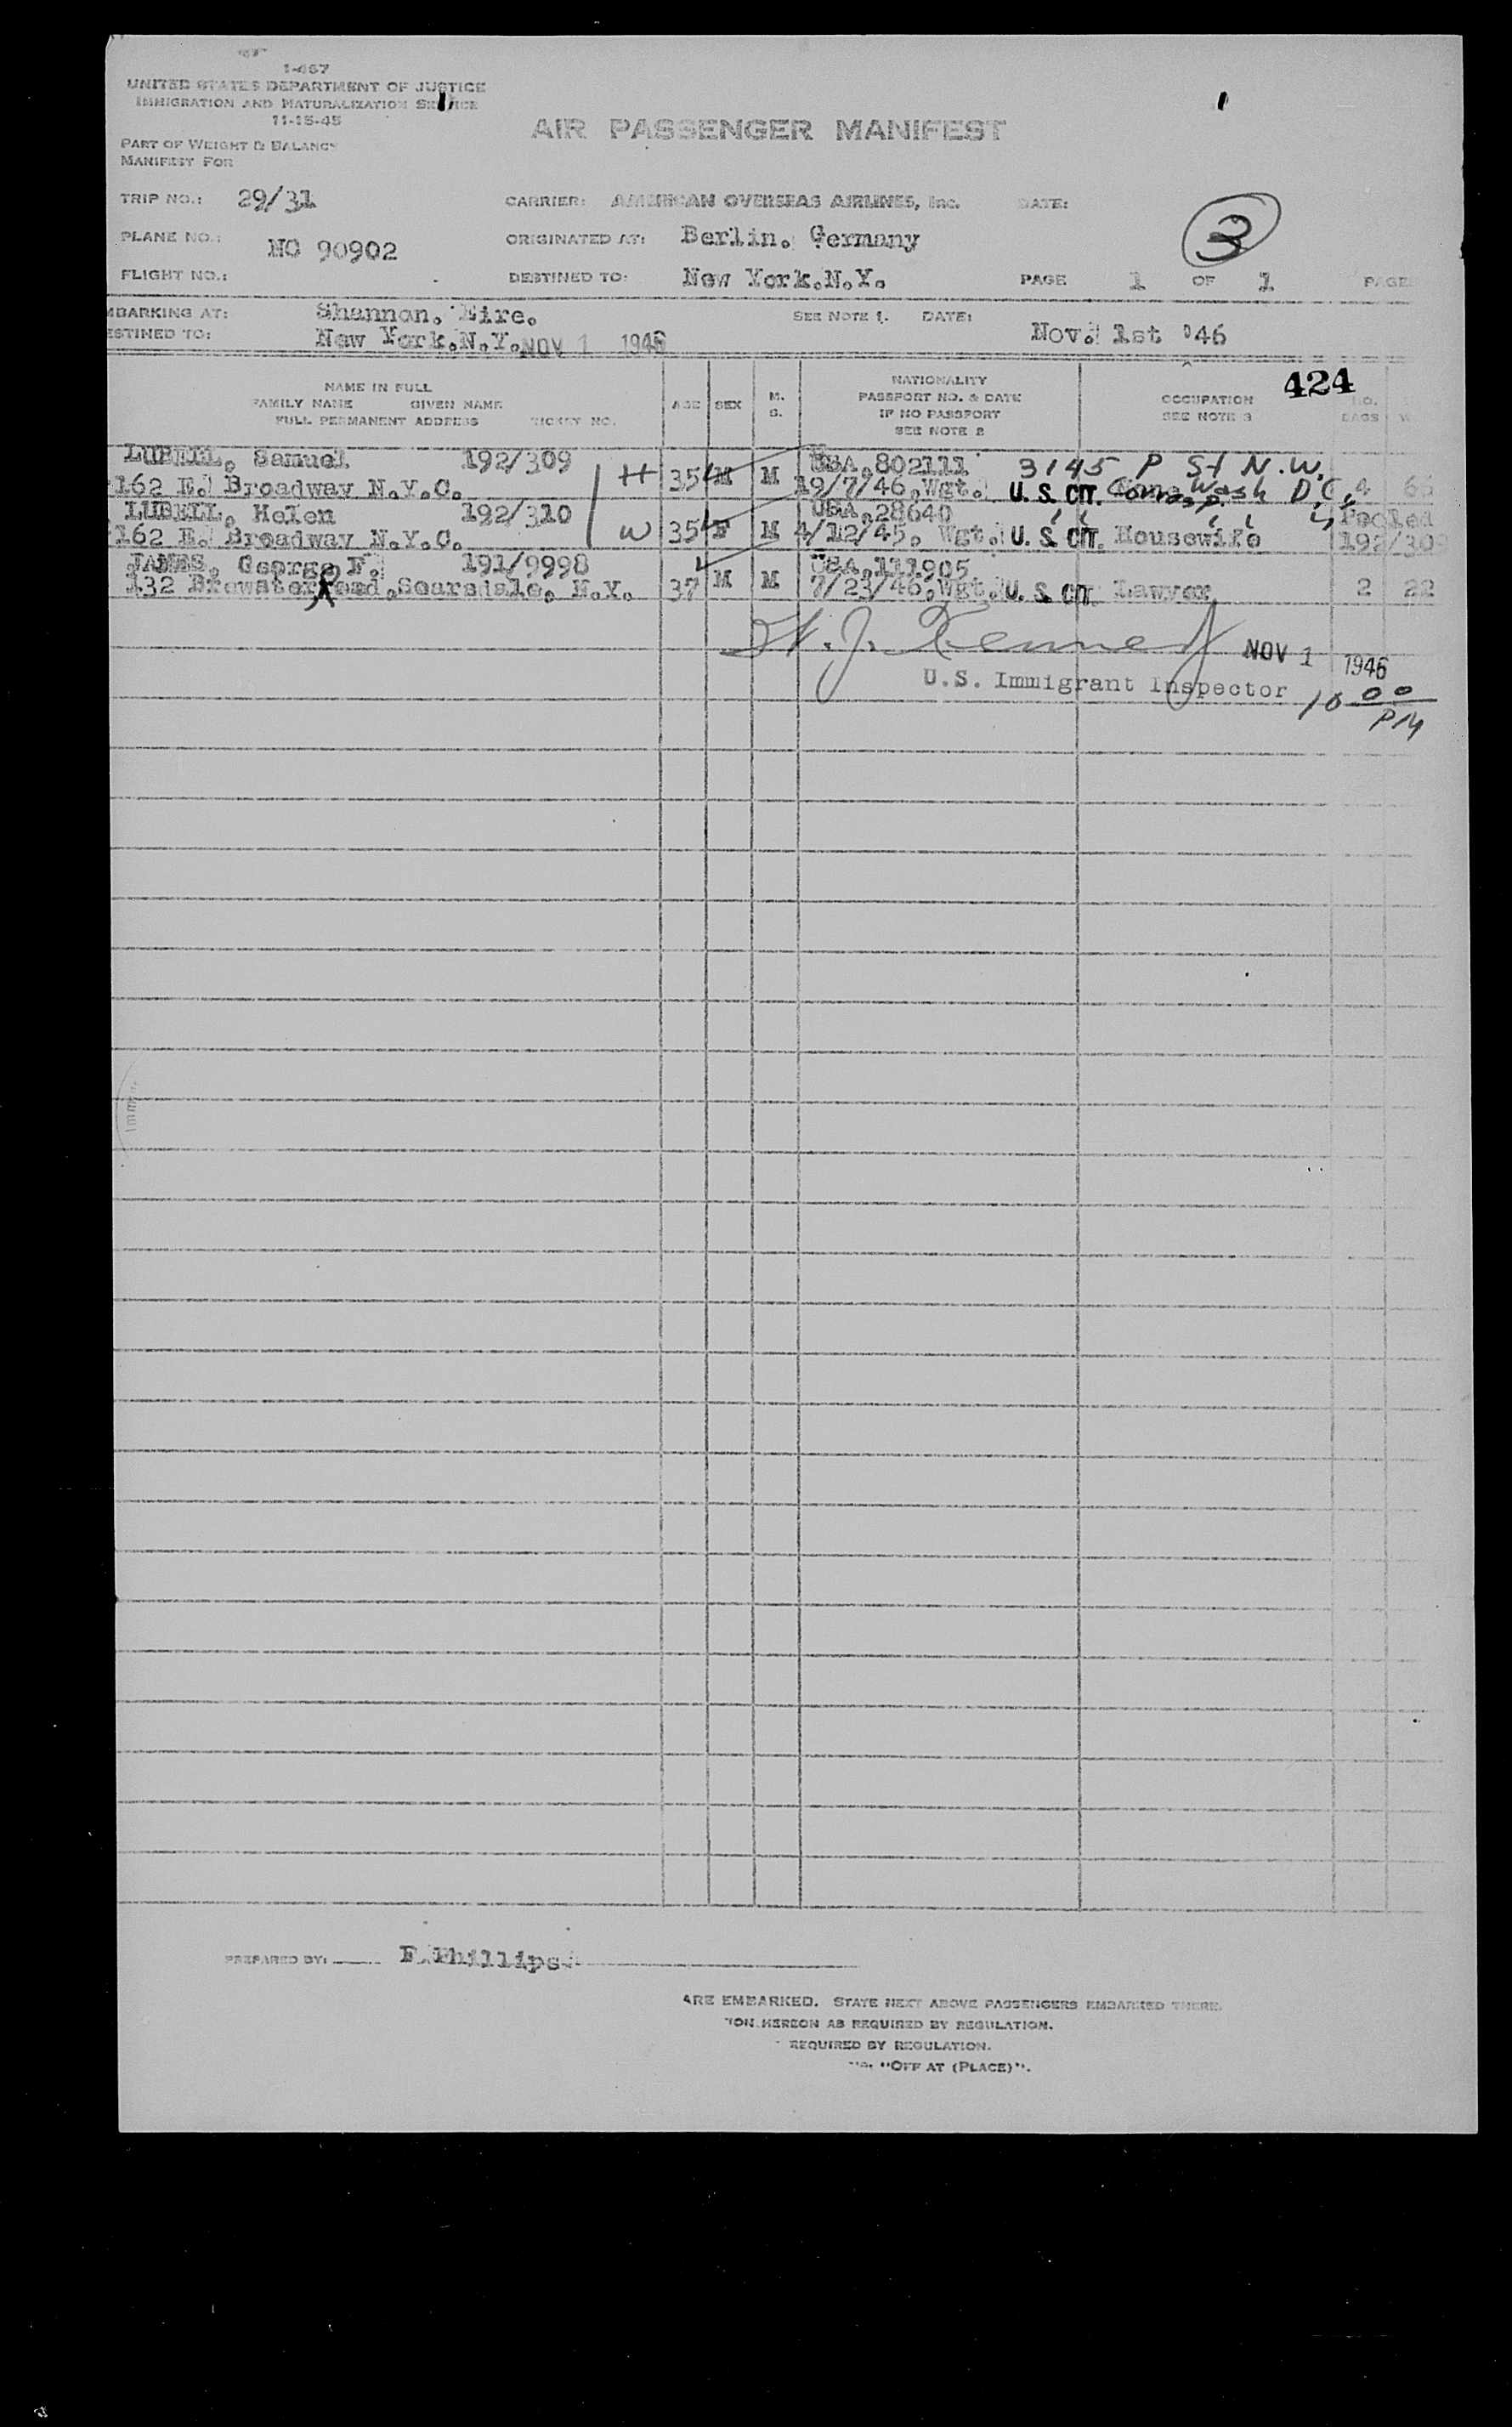 1-467
UNITED STATES DEPARTMENT OF JUSTICE
IMMIGRATION AND NATURALIZATION SERVICE
11-15-45
AIR PASSENGER MANIFEST
PART OF WEIGHT & BALANCE
MANIFEST FOR
TRIP NO.: 29/31 CARRIER: AMERICAN OVERSEAS AIRLINES, Inc. DATE:
3
PLANE NO.: NC 90902 ORIGINATED AT: Berlin. Germany
FLIGHT NO.: DESTINED TO: New York.N.Y. PAGE 1 OF 1 PAGE
MBARKING AT: Shannon. Eire. SEE NOTE 1. DATE: Nov. 1st '46
ESTINED TO: New York.N.Y. NOV 1 1946
424
NAME IN FULL
FAMILY NAME GIVEN NAME
FULL PERMANENT ADDRESS TICKET NO.
AGE SEX M. S.
NATIONALITY
PASSPORT NO. & DATE
IF NO PASSPORT
SEE NOTE 2
OCCUPATION
SEE NOTE 3
NO. BAGS W
LUBELL, Samuel 192/309 H 35 M M USA.802111 3145 P St N.W.
162 E. Broadway N.Y.C. 19/7/46.Wgt. U. S. CIT. Wash D.C. 4 66
LUBELL, Helen 192/310 W 35 F M USA.28640 Pooled
162 E. Broadway N.Y.C. 4/12/45. Wgt. U. S. CIT. Housewife 192/309
JAMES, George F. 191/9998 37 M M USA.111905
132 Brewster Road.Scarsdale. N.Y. 7/23/46.Wgt. U. S. CIT. Lawyer 2 22
H. J. Kennedy NOV 1 1946
U.S. Immigrant Inspector 10 00 PM
Imm
PREPARED BY: F.Phillips
ARE EMBARKED. STATE NEXT ABOVE PASSENGERS EMBARKED THERE.
ION HEREON AS REQUIRED BY REGULATION.
REQUIRED BY REGULATION.
"OFF AT (PLACE)".